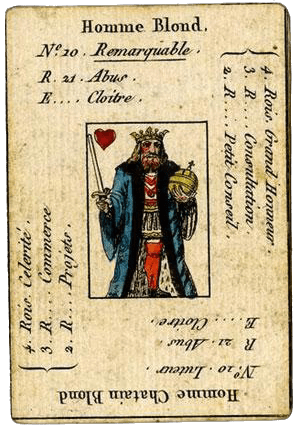 Homme Blond.
N.º 20. Remarquable.
R. 21. Abus.
E.... Cloitre.
4. Rois. Grand Honneur.
3. R.... Consultation.
2. R.... Petit Conseil.
4. Rois. Celerité.
3. R.... Commerce
2. R.... Projets.
Homme Chatain Blond
N.º 10. Tuteur.
R 21. Abus.
E..... Cloitre.